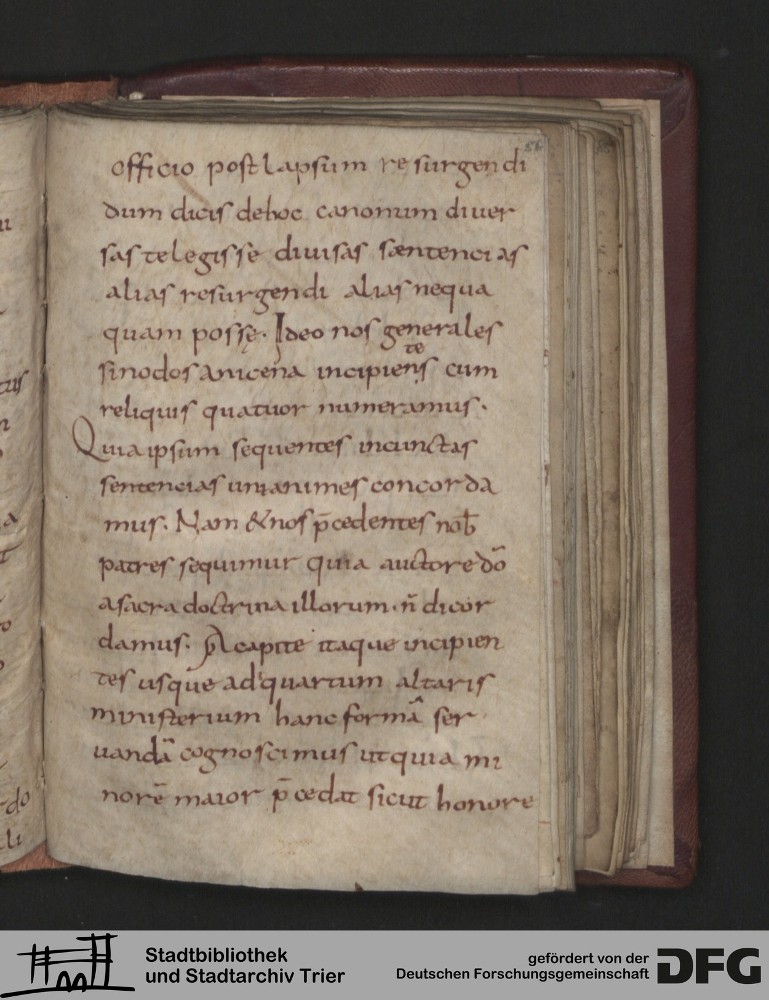 officio post lapsum resurgendi
dum dicis dehoc canonum diver
sas te legisse diuisas sentencias
alias resurgendi alias nequa
quam posse. Ideo nos generales
sinodos anicena incipientes cum
reliquis quatuor numeramus.
Quia ipsum sequentes incunctas
sentencias unianimes concorda
mus. Nam & nos p̄cedentes nob̄
patres sequimur quia auctore dō
a sacra doctrina illorum n̄ dicor
damus. A capite itaque incipien
tes usque ad quartum altaris
ministerium hanc formā ser
uandā cognoscimus ut quia mi
norē maior p̄cedat sicut honore
Stadtbibliothek
und Stadtarchiv Trier
gefördert von der
Deutschen Forschungsgemeinschaft
DFG